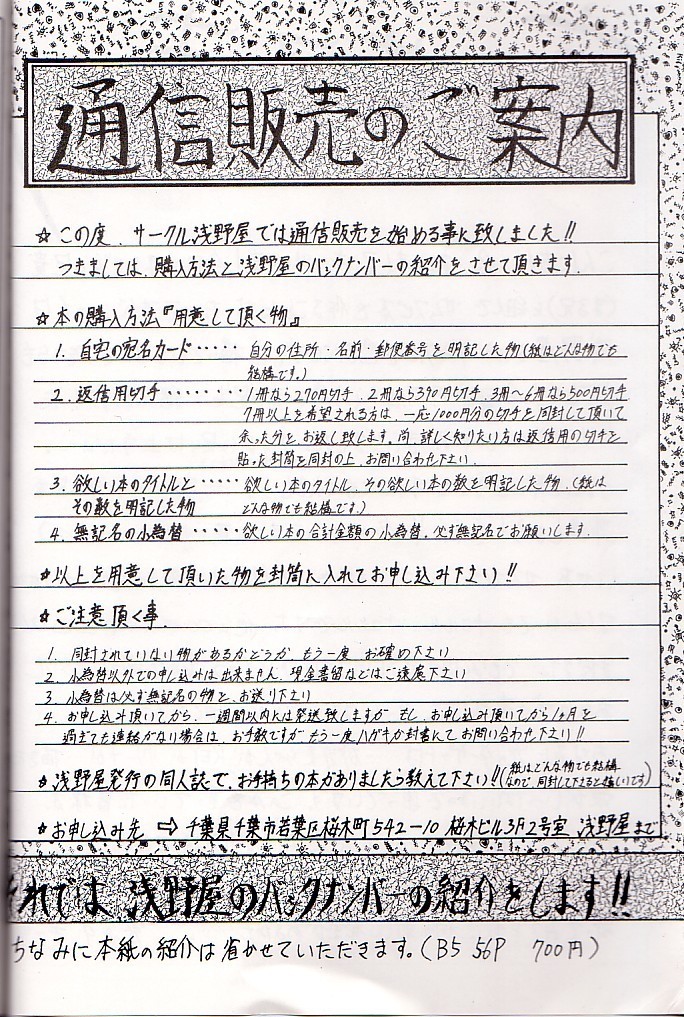 通信販売のご案内
☆この度、サークル浅野屋では通信販売を始める事に致しました!!
つきましては、購入方法と浅野屋のバックナンバーの紹介をさせて頂きます。
☆本の購入方法『用意して頂く物』
1. 自宅の宛名カード・・・・・自分の住所・名前・郵便番号を明記した物(紙はどんな物でも
結構です。)
2. 返信用切手・・・・・・・・1冊なら270円切手、2冊なら390円切手、3冊〜6冊なら500円切手
7冊以上を希望される方は、一応1000円分の切手を同封して頂いて
余った分を、お返し致します。尚、詳しく知りたい方は返信用の切手を
貼った封筒を同封の上、お問い合わせ下さい。
3. 欲しい本のタイトルと・・・・・欲しい本のタイトル、その欲しい本の数を明記した物。(紙は
その数を明記した物 どんな物でも結構です。)
4. 無記名の小為替・・・・・欲しい本の合計金額の小為替。必ず無記名でお願いします。
☆以上を用意して頂いた物を封筒に入れてお申し込み下さい!!
☆ご注意頂く事
1. 同封されていない物があるかどうか、もう一度、お確め下さい
2. 小為替以外での申し込みは出来ません。現金書留などはご遠慮下さい
3. 小為替は必ず無記名の物と、お送り下さい
4. お申し込み頂いてから、一週間以内には発送致しますが、もし、お申し込み頂いてから1ヶ月を
過ぎても連絡がない場合は、お手数ですが、もう一度ハガキか封書にて、お問い合わせ下さい!!
☆浅野屋発行の同人誌で、お手持ちの本がありましたら教えて下さい!!(紙はどんな物でも結構
なので、同封して下さると嬉しいです)
☆お申し込み先 ⇨ 千葉県千葉市若葉区桜木町542-10 桜木ビル3F2号室 浅野屋まで
それでは、浅野屋のバックナンバーの紹介をします!!
ちなみに本紙の紹介は省かせていただきます。(B5 56P 700円)